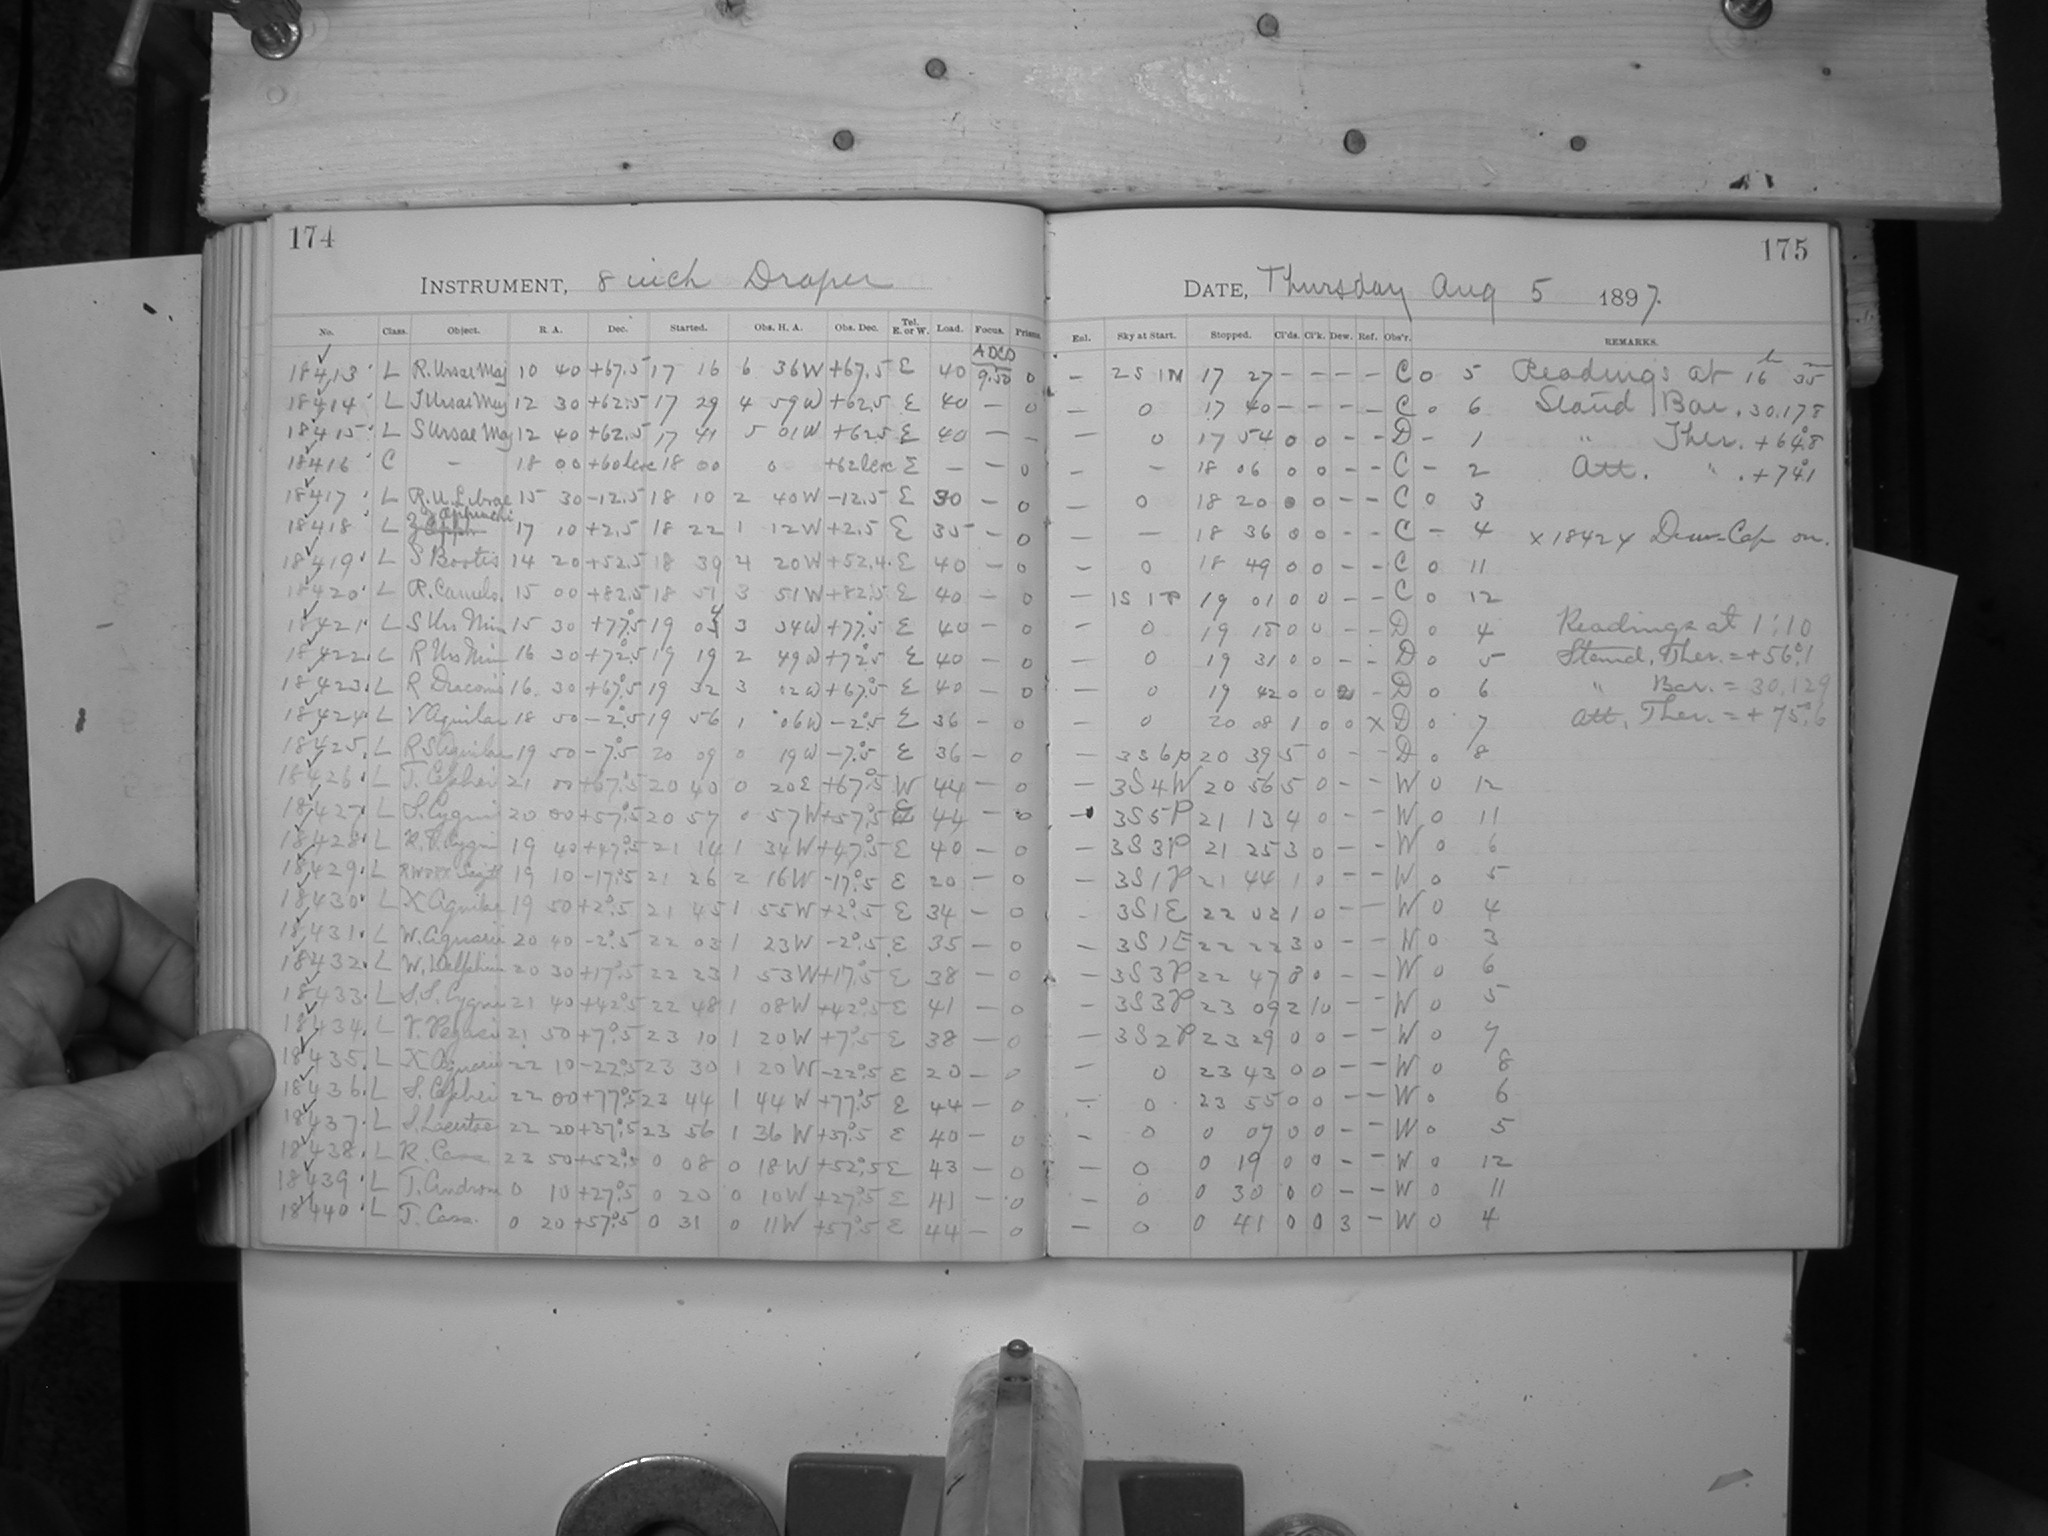 174
INSTRUMENT, 8 inch Draper
No. Class. Object. R. A. Dec. Started. Obs. H. A. Obs. Dec. Tel. E. or W. Load. Focus. Prisms.
ADCO
18413 L R. Ursae Maj 10 40 +67.5 17 16 6 36W +67.5 E 40 9.50 0
18414 L T Ursae Maj 12 30 +62.5 17 29 4 59W +62.5 E 40 – 0
18415 L S Ursae Maj 12 40 +62.5 17 41 5 01W +62.5 E 40 – –
18416 C – 18 00 +60 18 00 0 +62 E – – 0
18417 L R.U. Librae 15 30 -12.5 18 10 2 40W -12.5 E 30 – 0
18418 L Z Ophiuchi 17 10 +2.5 18 22 1 12W +2.5 E 35 – 0
18419 L S Bootis 14 20 +52.5 18 39 4 20W +52.4 E 40 – 0
18420 L R. Camelo. 15 00 +82.5 18 51 3 51W +82.5 E 40 – 0
18421 L S Urs Min 15 30 +77.5 19 04 3 34W +77.5 E 40 – 0
18422 L R Urs Min 16 30 +72.5 19 19 2 49W +72.5 E 40 – 0
18423 L R Draconis 16 30 +67.5 19 32 3 02W +67.5 E 40 – 0
18424 L V Aquilae 18 50 -2.5 19 56 1 06W -2.5 E 36 – 0
18425 L R S Aquilae 19 50 -7.5 20 09 0 19W -7.5 E 36 – 0
18426 L T. Cephei 21 00 +67.5 20 40 0 20E +67.5 W 44 – 0
18427 L S. Cygni 20 00 +57.5 20 57 0 57W +57.5 E 44 – 0
18428 L R.T. Cygni 19 40 +47.5 21 14 1 34W +47.5 E 40 – 0
18429 L 19 10 -17.5 21 26 2 16W -17.5 E 20 – 0
18430 L X Aquilae 19 50 +2.5 21 45 1 55W +2.5 E 34 – 0
18431 L W. Aquarii 20 40 -2.5 22 03 1 23W -2.5 E 35 – 0
18432 L W. Delphini 20 30 +17.5 22 23 1 53W +17.5 E 38 – 0
18433 L S.S. Cygni 21 40 +42.5 22 48 1 08W +42.5 E 41 – 0
18434 L V. Pegasi 21 50 +7.5 23 10 1 20W +7.5 E 38 – 0
18435 L X Aquarii 22 10 -22.5 23 30 1 20W -22.5 E 20 – 0
18436 L S. Cephei 22 00 +77.5 23 44 1 44W +77.5 E 44 – 0
18437 L S. Lacertae 22 20 +37.5 23 56 1 36W +37.5 E 40 – 0
18438 L R. Cass 22 50 +52.5 0 08 0 18W +52.5 E 43 – 0
18439 L T. Androm 0 10 +27.5 0 20 0 10W +27.5 E 41 – 0
18440 L T. Cass. 0 20 +57.5 0 31 0 11W +57.5 E 44 – 0
175
DATE, Thursday Aug 5 1897.
Enl. Sky at Start. Stopped. Cl'ds. Cl'k. Dew. Ref. Obs'r. REMARKS.
– 2S 1N 17 27 – – – – C 0 5 Readings at 16h 35m
– 0 17 40 – – – – C 0 6 Stand Bar. 30.178
– 0 17 54 0 0 – – D – 1 " Ther. +64.8
– – 18 06 0 0 – – C – 2 Att. " . +74.1
– 0 18 20 0 0 – – C 0 3
– – 18 36 0 0 – – C – 4 x 18424 Dew-Cap on.
– 0 18 49 0 0 – – C 0 11
– 1S 1P 19 01 0 0 – – C 0 12
– 0 19 15 0 0 – – D 0 4 Readings at 1:10
– 0 19 31 0 0 – – D 0 5 Stand. Ther. = +56.1
– 0 19 42 0 0 2 – D 0 6 " Bar. = 30.129
– 0 20 08 1 0 0 X D 0 7 Att. Ther. = +75.6
– 3S6P 20 39 5 0 – – D 0 8
– 3S4W 20 56 5 0 – – W 0 12
– 3S5P 21 13 4 0 – – W 0 11
– 3S3P 21 25 3 0 – – W 0 6
– 3S1P 21 44 1 0 – – W 0 5
– 3S1E 22 02 1 0 – – W 0 4
– 3S1E 22 22 3 0 – – W 0 3
– 3S3P 22 47 8 0 – – W 0 6
– 3S3P 23 09 2 10 – – W 0 5
– 3S2P 23 29 0 0 – – W 0 7
– 0 23 43 0 0 – – W 0 8
– 0 23 55 0 0 – – W 0 6
– 0 0 07 0 0 – – W 0 5
– 0 0 19 0 0 – – W 0 12
– 0 0 30 0 0 – – W 0 11
– 0 0 41 0 0 3 – W 0 4